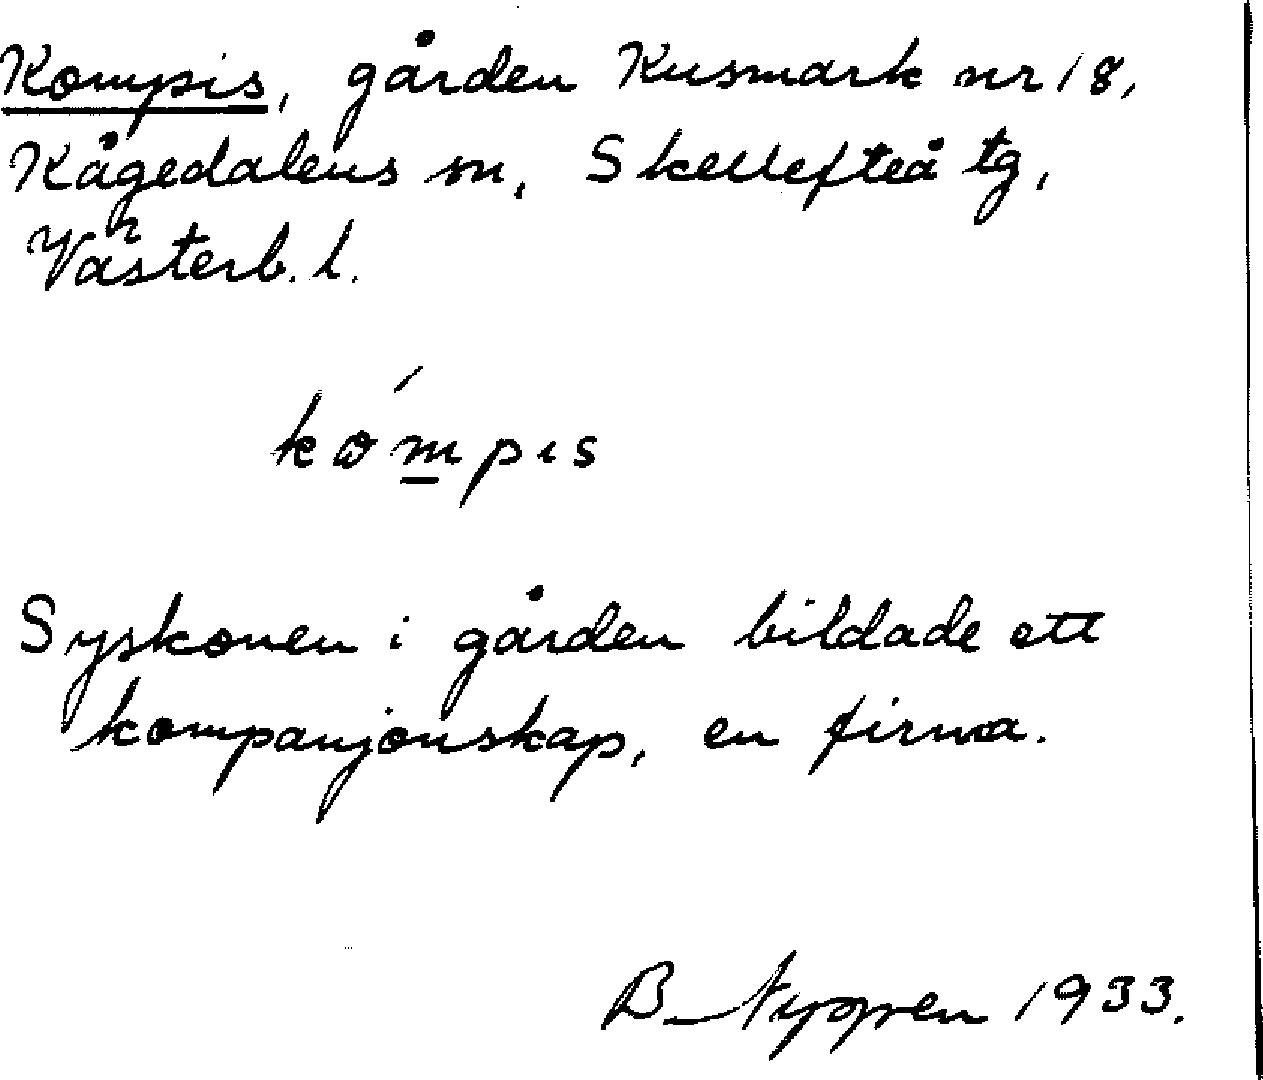 Kompis, gården Kusmark nr 18,
Kågedalens sn, Skellefteå tg,
Västerb. l.
kómpis
Syskonen i gården bildade ett
kompanjonskap, en firma.
B. Nygren 1933.